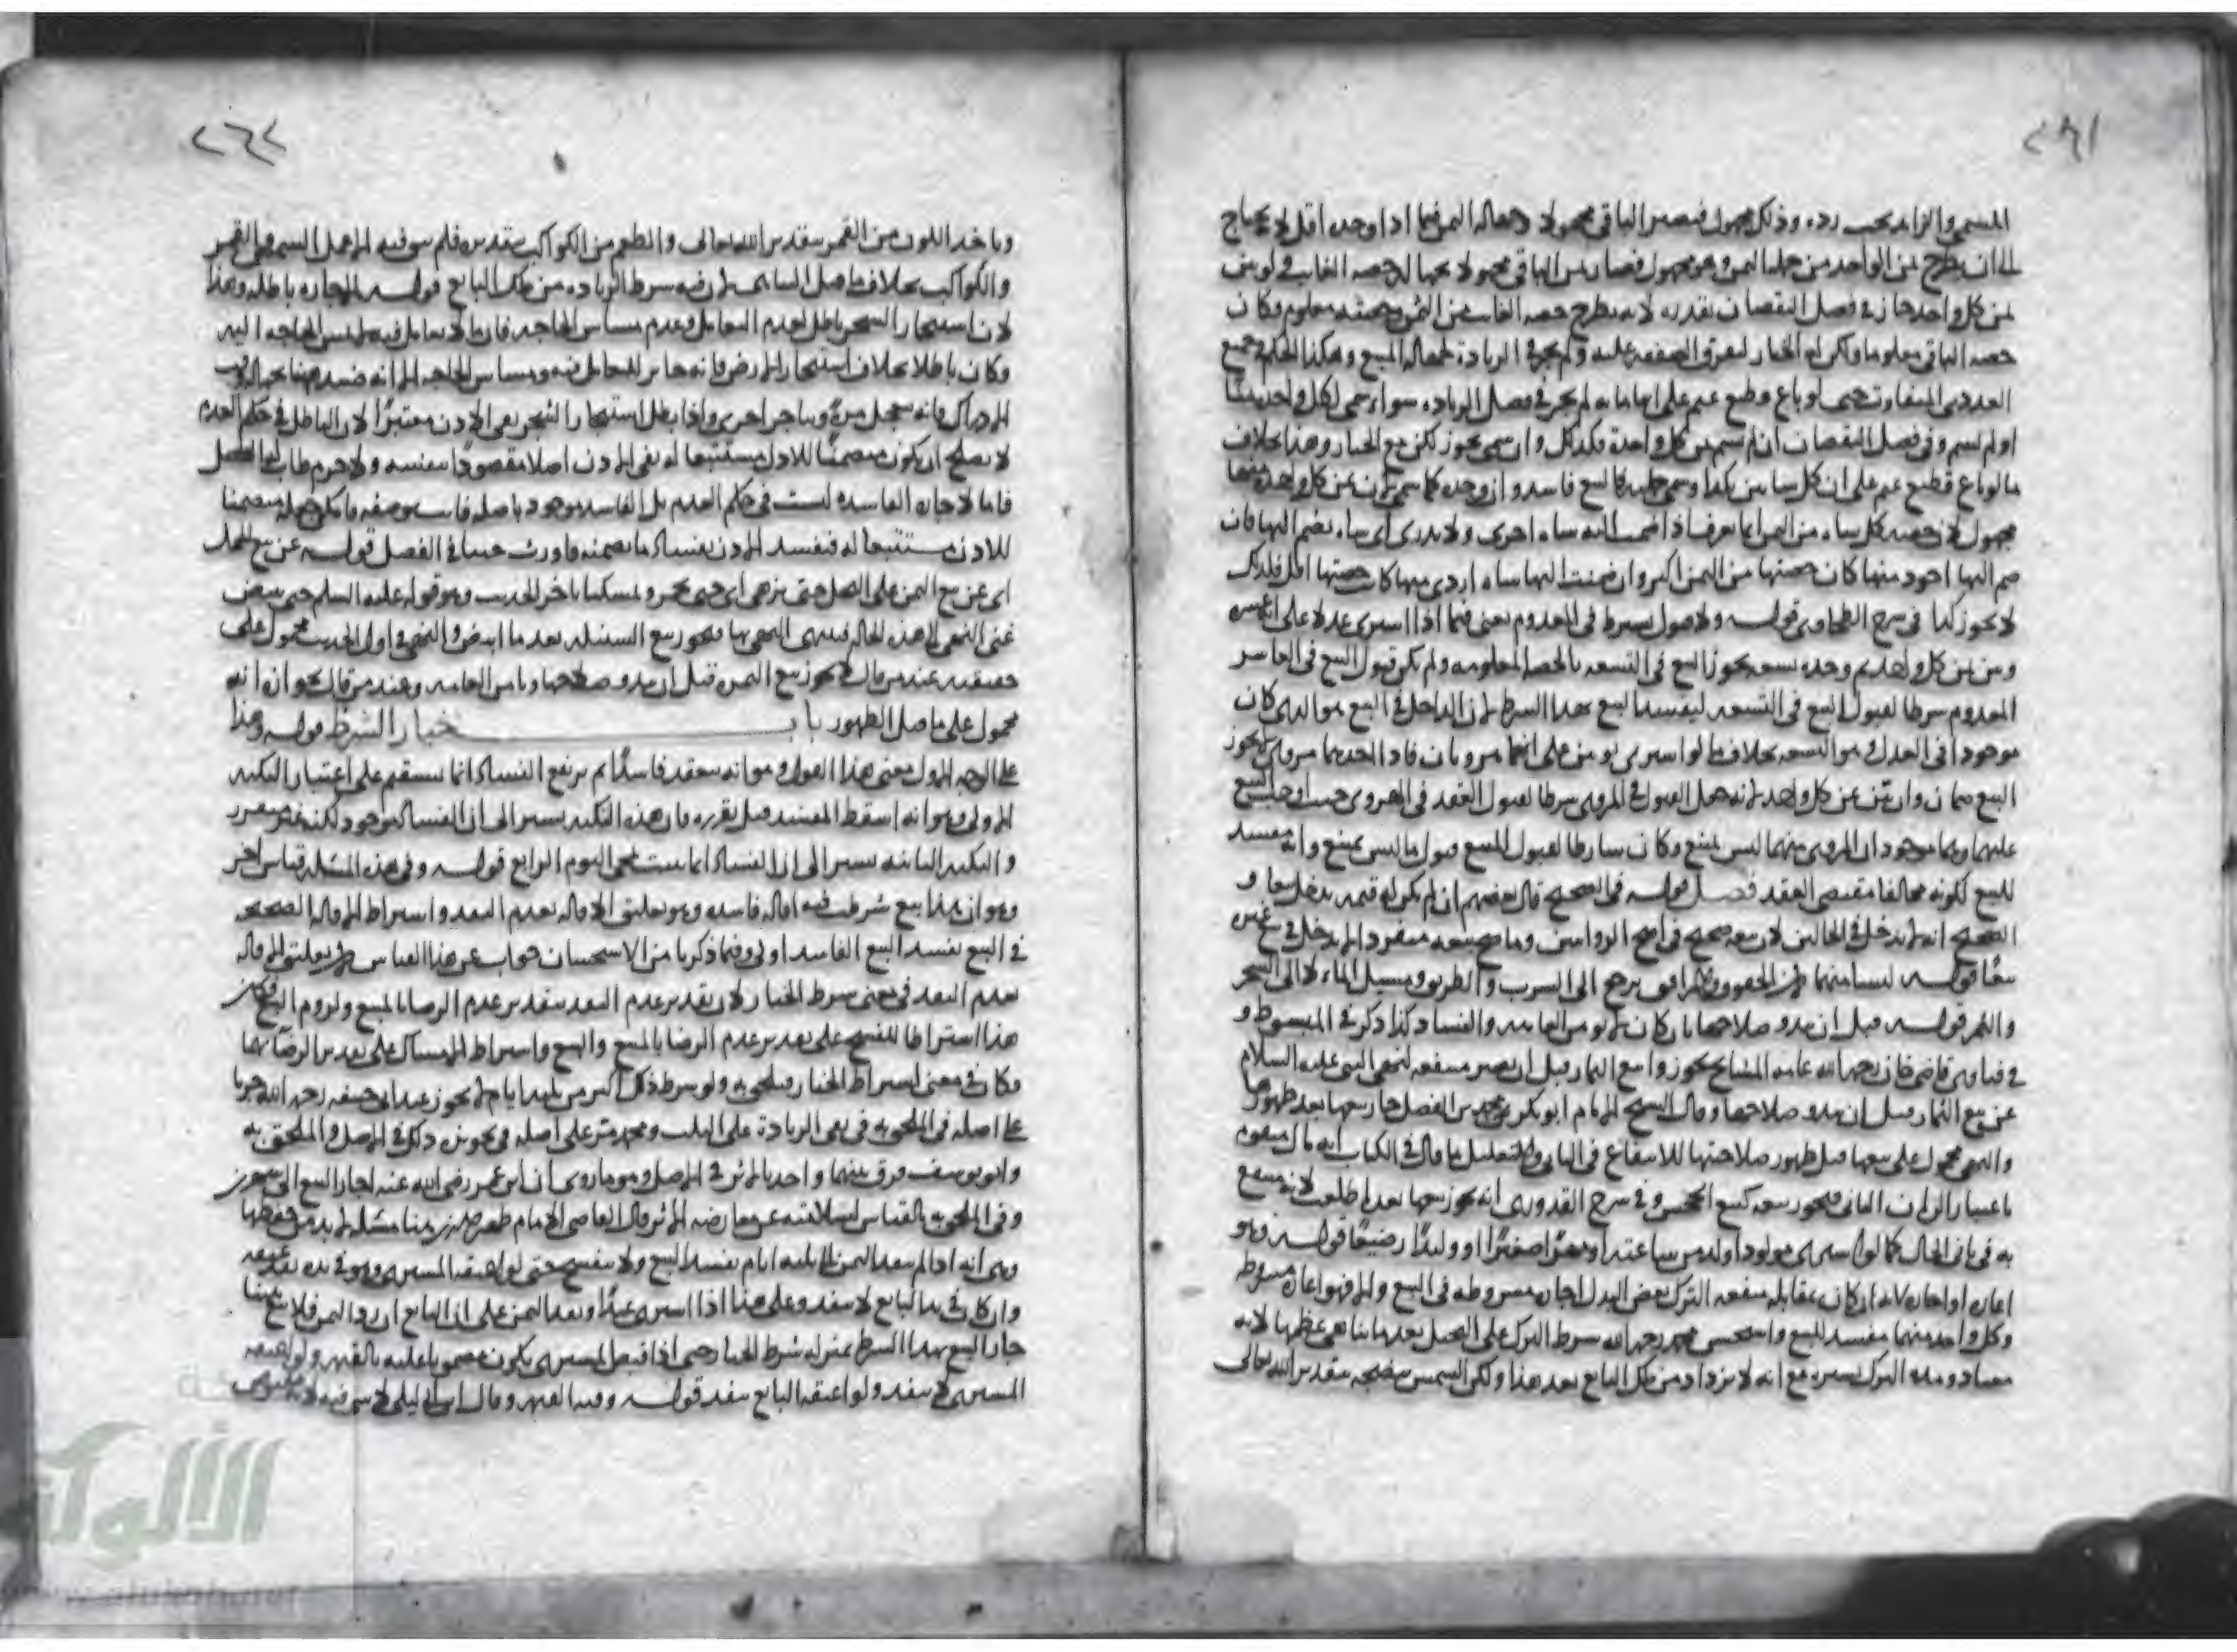 ٢٨١
المسمى والزايد يجب رده وذلك مجهول فيصير الباقي مجهولا وجهالة الثمن فيما اذا وجده اقل لا يحتاج
الى ان يطرح ثمن الواحد من جملة الثمن وهو مجهول فصار ثمن الباقي مجهولا لجهالة حصة الغايب ولو بين
ثمن كل واحد جاز في فصل النقصان بقدره لانه يطرح حصة الغايب من الثمن وحصته معلوم وكان
حصة الباقي معلوما ولكن له الخيار لتفرق الصفقة عليه ولم يجز في الزيادة لجهالة المبيع وهكذا الحكم في جميع
العددي المتفاوت حتى لو باع قطيع غنم على انها مايه لم يجز في فصل الزياده سواء سمى لكل واحد ثمنا
او لم يسم وفي فصل النقصان ان لم يسم ثمن كل واحدة فكذلك وان سمى يجوز لكن مع الخيار وهذا بخلاف
ما لو باع قطيع غنم على ان كل شاتين بكذا وسمى جملته فالبيع فاسد وان وجده كما سمى لان ثمن كل واحدة منها
مجهول لان حصة كل شاه من الثمن انما تعرف اذا ضمت اليه شاه اخرى ولا يدرى اي شاه يضم اليها فان
ضم اليها اجود منها كان حصتها من الثمن اكثر وان ضمت اليها شاه اردى منها كانت حصتها اقل فلذلك
لا يجوز كذا في شرح الطحاوي قوله ولا قبول يشترط في المعدوم يعني فيما اذا اشترى عدلا على انه عشرة
وبين ثمن كل واحد ثم وجده تسعه يجوز البيع في التسعه بالحصة المعلومه ولم يكن قبول البيع في العاشر
المعدوم شرطا لقبول البيع في التسعه ليفسد البيع بهذا الشرط لان الداخل في البيع هو الذي كان
موجودا في العدل وهو التسعه بخلاف ما لو اشترى ثوبين على انهما مرويان فاذا احدهما مروي لا يجوز
البيع فيهما وان بين ثمن كل واحد لانه جعل القبول في المروي شرطا لقبول العقد في الهروي حيث اوجب البيع
عليهما وهما موجودان والمروي منهما ليس بمبيع وكان شارطا لقبول المبيع قبول ما ليس بمبيع وانه مفسد
للبيع لكونه مخالفا مقتضى العقد فصل قوله في الصحيح قال بعضهم ان لم يكن له قيمه يدخل تبعا و
الصحيح انه لا يدخل في الحالين لان بيعه صحيح في اصح الروايتين وما صح بيعه منفردا لا يدخل في غيره
تبعا قوله ليسا منهما لان الحقوق والمرافق يرجع الى الشرب والطريق ومسيل الماء لا الى الشجر
والثمر قوله قبل ان يبدو صلاحها بان كان لا يومن العاهه والفساد كذا ذكر في المبسوط و
في فتاوى قاضي خان رحمه الله عامة المشايخ لم يجوزوا بيع الثمار قبل ان يصير منتفعه لنهي النبي عليه السلام
عن بيع الثمار قبل ان يبدو صلاحها وقال الشيخ الامام ابو بكر محمد بن الفضل جاز بيعها بعد ظهورها
والنهي محمول على بيعها قبل ظهور صلاحيتها للانتفاع في الثاني والتعليل ما قال في الكتاب انه مال متقوم
باعتبار الزمان الثاني فيجوز بيعه كبيع الجحش وفي شرح القدوري انه يجوز بيعها بعد ما طلعت لانه منتفع
به في ثاني الحال كما لو اشترى مولودا ولد من ساعته او مهرا صغيرا او وليدا رضيعا قوله وهو
اعارة او اجارة لانه ان كان بمقابلة منفعة الترك بعض البدل اجارة مشروطه في البيع والا فهو اعارة مشروطة
وكل واحد منهما مفسد للبيع واستحسن محمد رحمه الله شرط الترك على النخيل بعد ما تناهى عظمها لانه
معتاد ومدة الترك يسيره مع انه لا يزداد من ملك البايع بعد هذا ولكن الشمس ينضجه بتقدير الله تعالى
٢٦٢
وياخذ اللون من القمر بتقدير الله تعالى والطعم من الكواكب بتقديره فلم يبق فيه الا عمل الشمس والقمر
والكواكب بخلاف ما قبل التناهي لان فيه شرط الزياده من ملك البايع قوله الاجاره باطله وهذا
لان استيجار الشجر باطل لعدم التعامل وعدم مساس الحاجه فان ما لا تعامل فيه ليس الحاجه اليه
وكان باطلا بخلاف استيجار الارض فانه جايز للتعامل فيه ومساس الحاجه الا انه فسد هنا لجهالة وقت
الادراك فانه يتعجل مرة ويتاخر اخرى واذا بطل استيجار الشجر بقي الاذن معتبرا لان الباطل في حكم العدم
لا يصلح ان يكون متضمنا للاذن مستتبعا له فبقي الاذن اصلا مقصودا بنفسه ولا جرم طاب له الفضل
فاما الاجاره الفاسده ليست في حكم العدم بل الفاسد موجود باصله فايت بوصفه فامكن جعله متضمنا
للاذن مستتبعا له فيفسد الاذن بفساد ما تضمنه فاورث خبثا في الفضل قوله عن بيع النخل
اي عن بيع الثمن على النخل حتى يزهى اي حتى يحمر وتمسكنا باخر الحديث وهو قوله عليه السلم حتى يبيض
غيى النهي الى هذه الحاله فينتهي النهي بها فيجوز بيع السنبله بعد ما ابيض والنهي في اول الحديث محمول على
حقيقته عند من قال لا يجوز بيع الثمر قبل ان يبدو صلاحها ويامن العاهه وعند من قال يجوز ان انه
محمول على ما قبل الظهور باب خيار الشرط قوله وهذا
على الوجه الاول يعني هذا القول وهو انه ينعقد فاسدا ثم يرتفع الفساد انما يستقيم على اعتبار النكته
الاولى وهو انه اسقط المفسد قبل تقرره فان هذه النكته يشير الى ان الفساد موجود لكنه غير متقرر
والنكته الثانيه يشير الى ان الفساد انما يثبت بمجي اليوم الرابع قوله وفي هذه المسئله قياس اخر
وهو ان هذا بيع شرطت فيه اقاله فاسده وهو تعليق الاقاله بعدم النقد واشتراط الاقاله الصحيحه
في البيع يفسد البيع الفاسد اولى وفيما ذكرنا من الاستحسان جواب عن هذا القياس لان تعليق الاقاله
بعدم النقد في معنى شرط الخيار لان تقدير عدم النقد بتقدير عدم الرضا بالمبيع ولزوم البيع فكان
هذا اشتراطا للفسخ على تقدير عدم الرضا بالمبيع والبيع واشتراط الامساك على تقدير الرضا بهما
فكان في معنى اشتراط الخيار فيلحق به ولو شرط ذلك اكثر من ثلثة ايام لا يجوز عند ابي حنيفه رحمه الله جريا
على اصله في الملحق به في نفي الزيادة على الثلث ومحمد مر على اصله في تجويز ذلك في الاصل والملحق به
وابو يوسف فرق بينهما واخذ بالاثر في الاصل وهو ما روي ان ابن عمر رضي الله عنه اجاز البيع الى شهرين
وفي الملحق به بالقياس لسلامته عن معارضه الاثر وقال القاضي الامام ظهير الدين هنا مسئله لا بد من حفظها
وهي انه اذا لم ينقد الثمن الى ثلثه ايام يفسد البيع ولا ينفسخ حتى لو اعتقه المشتري وهو في يده نفذ عتقه
وان كان في يد البايع لا ينفذ وعلى هذا اذا اشترى عبدا ونقد الثمن على ان البايع ان رد الثمن فلا بيع بيننا
جاز البيع بهذا الشرط بمنزلة شرط الخيار حتى اذا قبض المشتري يكون مضمونا عليه بالقيمه ولو اعتقه
المشتري لا ينفذ ولو اعتقه البايع ينفذ قوله وفيه القيمه وقال ابن ابي ليلى لا شي فيه لانه